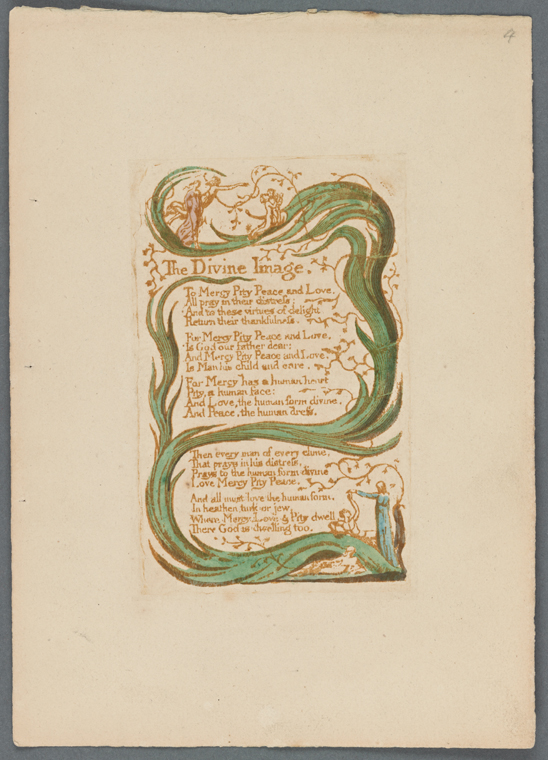 4
The Divine Image.
To Mercy Pity Peace and Love,
All pray in their distress:
And to these virtues of delight
Return their thankfulness.
For Mercy Pity Peace and Love,
Is God our father dear:
And Mercy Pity Peace and Love,
Is Man his child and care.
For Mercy has a human heart
Pity, a human face:
And Love, the human form divine,
And Peace, the human dress.
Then every man of every clime,
That prays in his distress,
Prays to the human form divine
Love Mercy Pity Peace.
And all must love the human form,
In heathen, turk or jew,
Where Mercy, Love & Pity dwell,
There God is dwelling too.